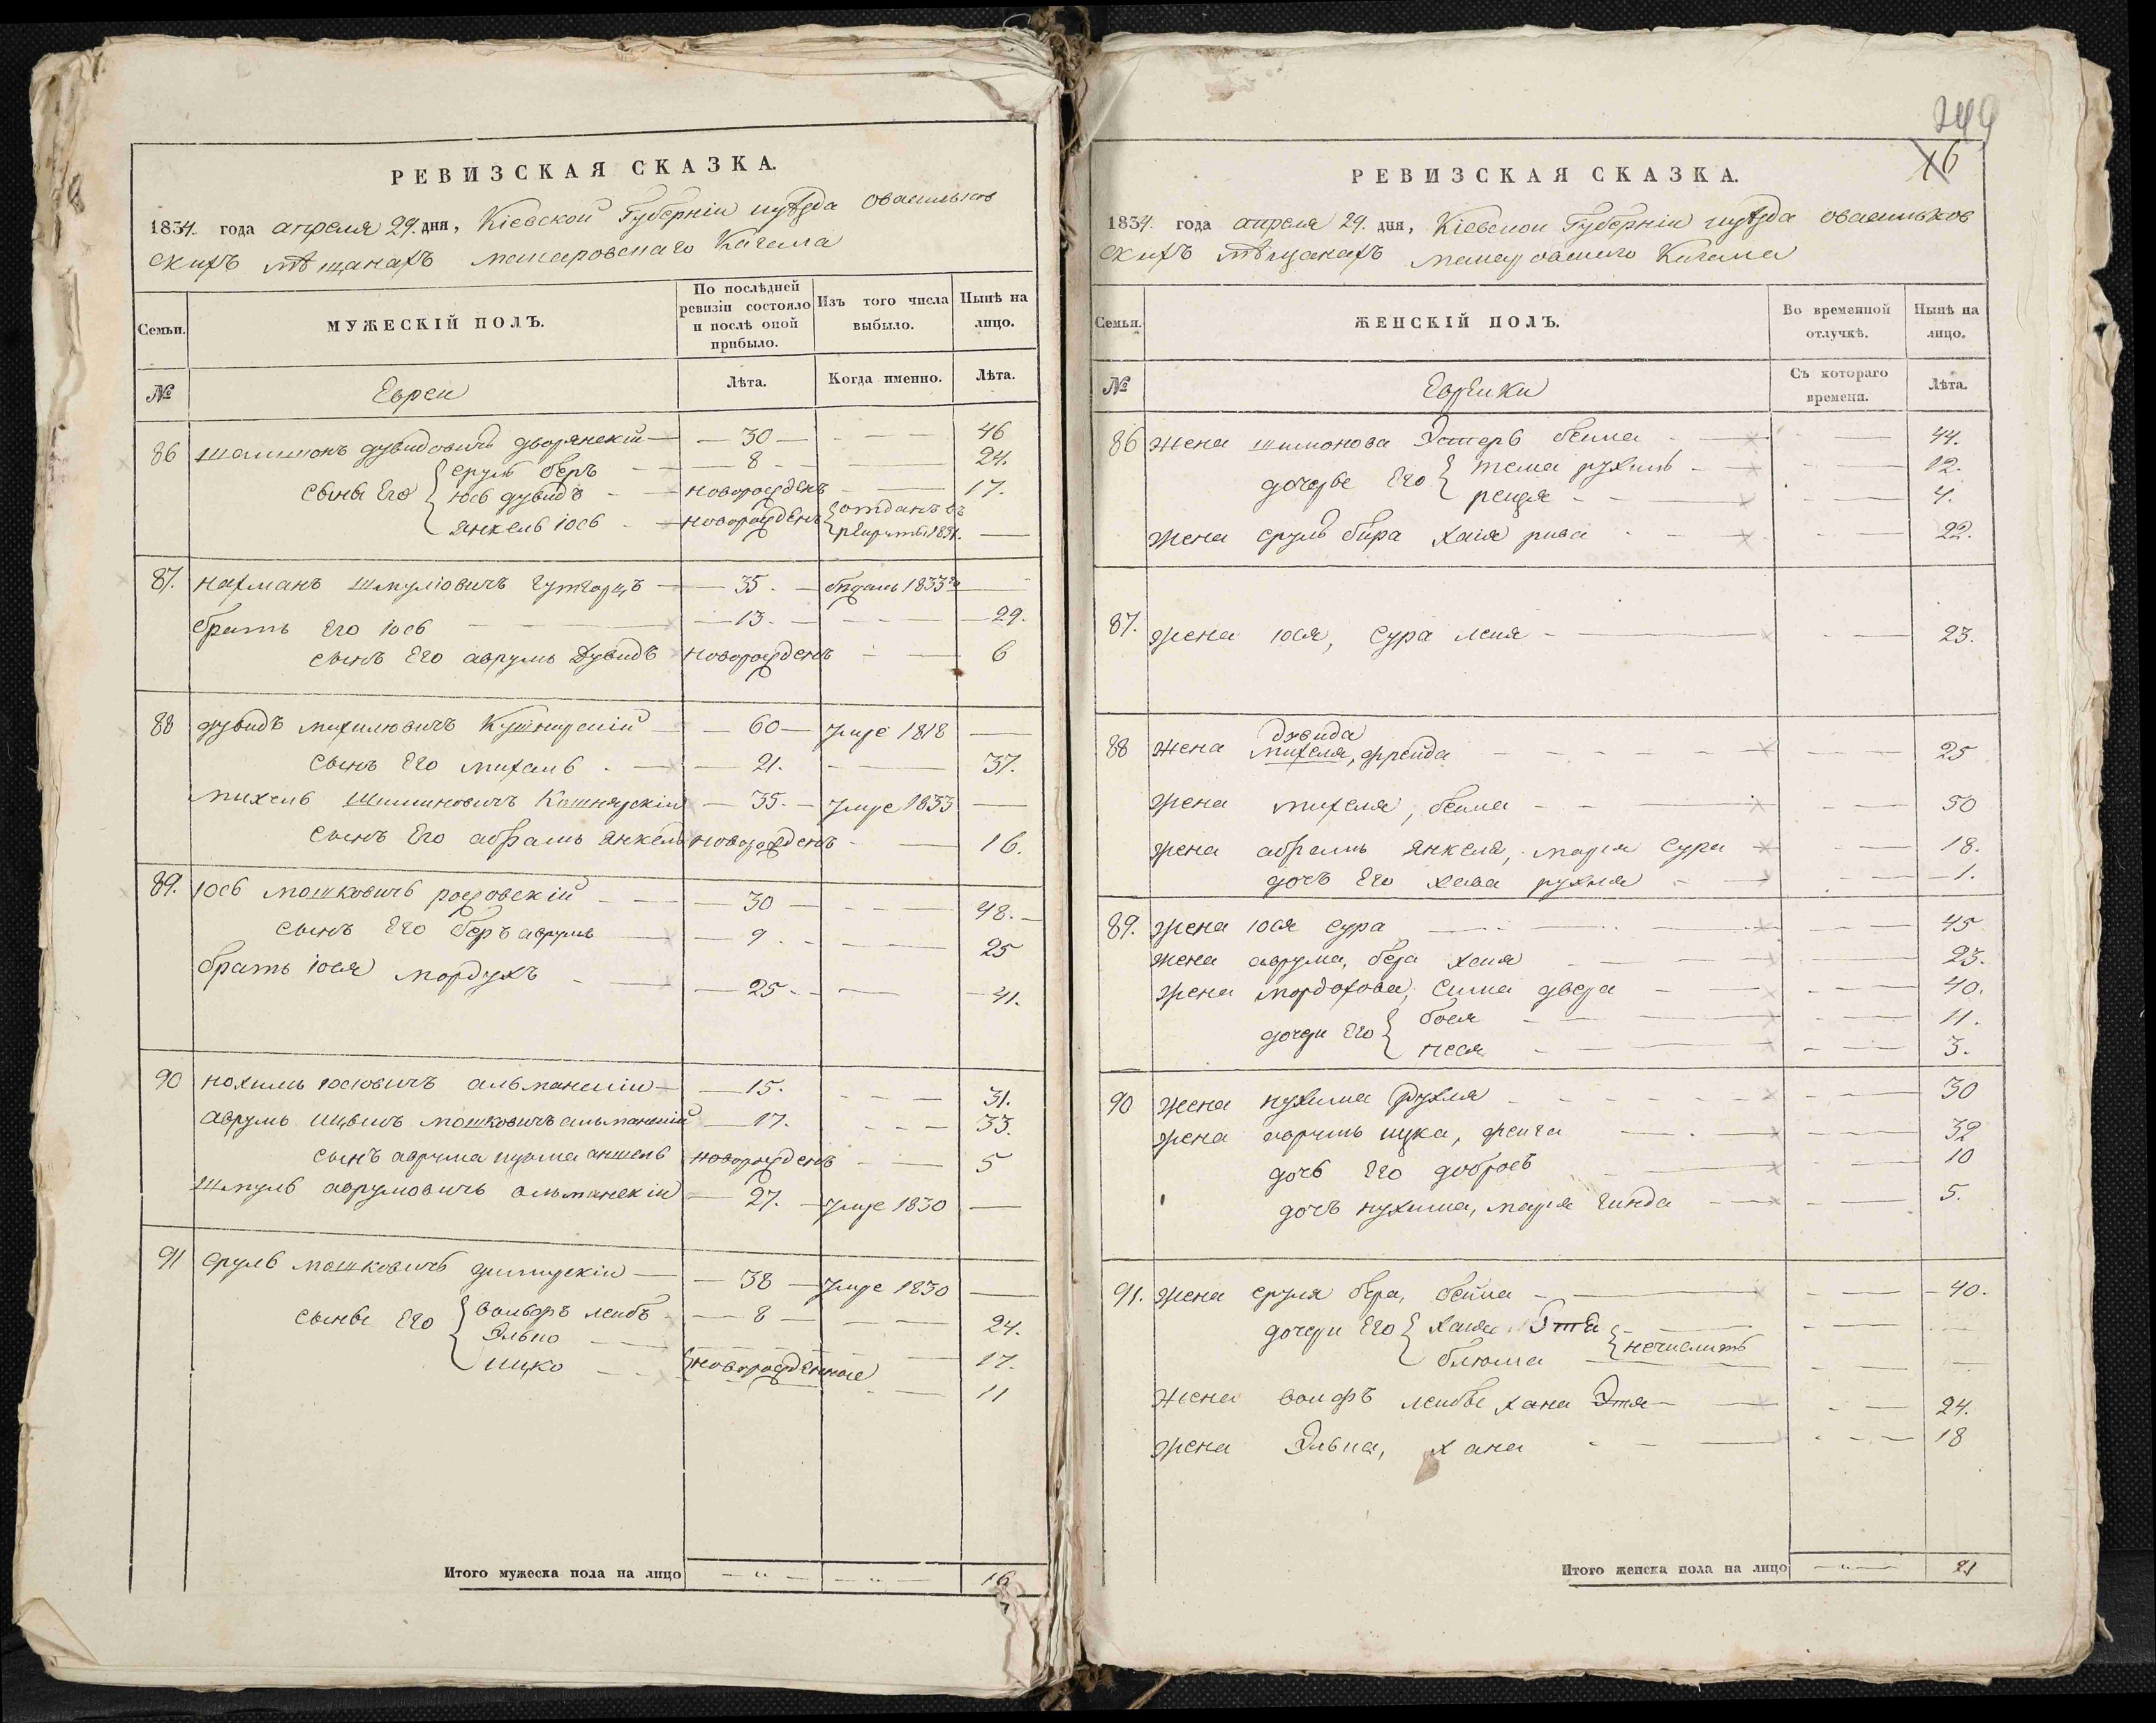 РЕВИЗСКАЯ СКАЗКА.
1834. года апреля 29. дня, Кіевской Губерніи иуѣзда овасильков
скихъ мѣщанахъ макаровскаго Кагала
Семьи.
МУЖЕСКІЙ ПОЛЪ.
По послѣдней ревизіи состояло и послѣ оной прибыло.
Изъ того числа выбыло.
Нынѣ на лицо.
№
Евреи
Лѣта.
Когда именно.
Лѣта.
86 Шлиммонъ дувидовичъ дворянскій — 30 — 46
сынве Его { сруль беръ — 8 — 24.
юсь дувидъ — новорожденъ — 17.
Янкель іось — новорожденъ { отданъ въ рекруты 1831. —
87. Нахманъ шмуліовичъ — 35. — 1833 —
братъ Его іось — 13. — 29.
сынъ Его аврумъ Дувидъ новорожденъ — 6
88 дувидъ михилювичъ — 60 — умре 1818 —
сынъ Его михаль — 21. — 37.
михель Шиминовичъ — 35. — умре 1833 —
сынъ Его абрамъ Янкель новорожденъ — 16.
89. Юсь мошковичъ росовскій — 30 — 48.
сынъ Его беръ аврумъ — 9 — 25
братъ іося мордухъ — 25. — 41.
90 нохимъ юсіовичъ альманскій — 15. — 31.
аврумъ ицвикъ мошковичъ альманскій — 17. — 33.
сынъ аврума аншель новорожденъ — 5
Шмуль аврумовичъ альманскій — 27. — умре 1830 —
91 Сруль мошковичъ — 38 — умре 1830 —
сынве Его { вольфъ лейбъ — 8 — 24.
Эльно — 17.
ицко — { новорожденные — 11
Итого мужеска пола на лицо — " — — " — 16
244
16
РЕВИЗСКАЯ СКАЗКА.
1834. года апреля 29. дня, Кіевской Губерніи иуѣзда овасильков
скихъ мѣщанахъ макаровскаго Кагала
Семьи.
ЖЕНСКІЙ ПОЛЪ.
Во временной отлучкѣ.
Нынѣ на лицо.
№
Еврейки
Съ котораго времени.
Лѣта.
86 Жена шимонова Эстеръ бейла — 44.
дочерве Его { тема рухиль — 12.
рейзя — 4.
Жена сруль бера хаія рива — 22.
87. Жена юся, Сура лея — 23.
88 Жена дувида
михеля, фрейда — 25
Жена михеля, бейла — 50
Жена абрамъ Янкеля, маря Сура — 18.
дочъ Его хава рухля — 1.
89. Жена юся сура — 45
жена аврума, бера хая — 23.
Жена мордохова, Сима двера — 40.
дочери Его { бося — 11.
неся — 3.
90 Жена нухима Рухля — 30
жена аврумъ ицка, фейга — 32
дочь Его добросъ — 10
дочъ нухима, маря Гинда — 5.
91. Жена сруля бера, бейла — 40.
дочери Его { хаія Этя — { нечислить
блюма —
Жена волфъ лейбве хана Этя — 24.
Жена Эльна, хана — 18
Итого женска пола на лицо — " — 21